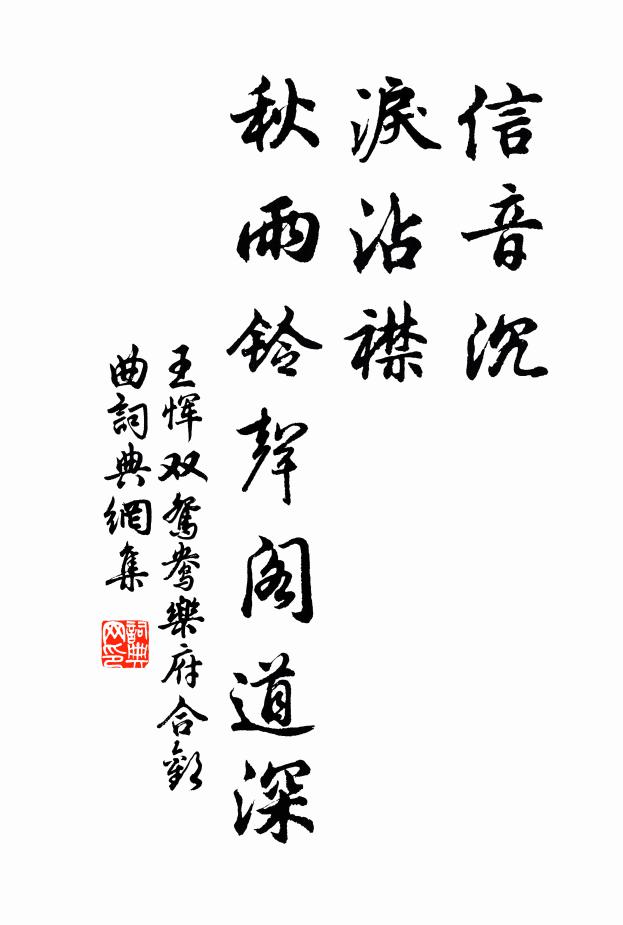 信音沉
淚沾襟
秋雨鈴聲閣道深
王惲双鴛鴦樂府合歡
曲詞典網集
詞典
网印